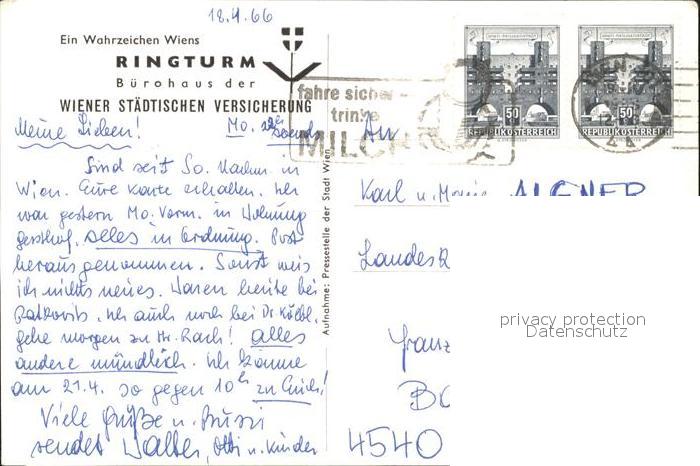 18.4.66
Ein Wahrzeichen Wiens
RINGTURM
Bürohaus der
WIENER STÄDTISCHEN VERSICHERUNG
fahre sicher
trinke
MILCH
50
REPUBLIK ÖSTERREICH
50
REPUBLIK ÖSTERREICH
WIEN
Meine Lieben! Mo. abends
Sind seit So. Nachm. in
Wien. Eure Karte erhalten. Ich
war gestern Mo. Vorm. in Wohnung
Gersthof, alles in Ordnung. Post
herausgenommen. Sonst weis
ich nichts neues. Waren heute bei
ich auch noch bei Dr. Kölbl,
gehe morgen zu Hr. Rach! alles
andere mündlich. Ich komme
am 21.4. so gegen 10h zu Euch!
Viele Grüße u. Bussi
sendet Walter, Otti u. Kinder
Aufnahme: Pressestelle der Stadt Wien
An
Karl u. Maria AIGNER
Landes
Franz
4540
privacy protection
Datenschutz